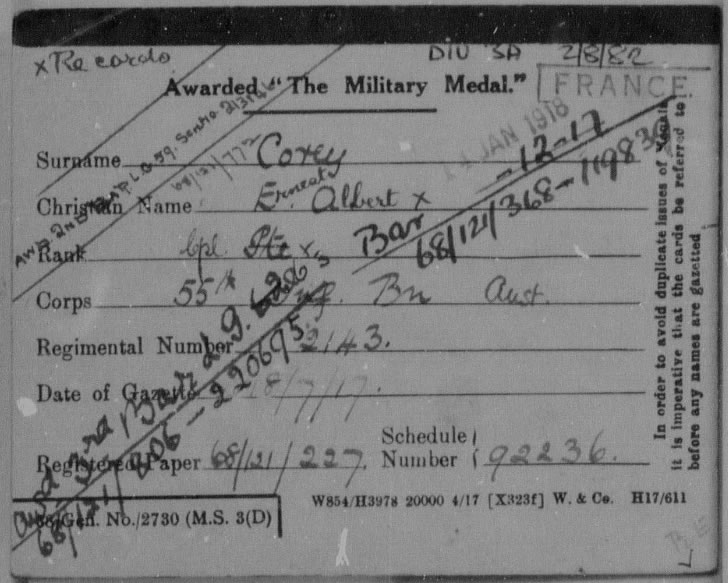 x Records
DIV 3A 2/8/82
Awarded "The Military Medal."
FRANCE.
14 JAN 1918
-12-17
Bar 68/121/368-119836
Surname Corey
Christian Name Ernest Albert x
Rank Cpl. Pte x
Corps 55th Inf. Bn Aust.
Regimental Number 2143.
Date of Gazette 18/7/17.
Registered Paper 68/121/227. Schedule Number 92236.
68/Gen. No./2730 (M.S. 3(D)
W854/H3978 20000 4/17 [X323f] W. & Co. H17/611
In order to avoid duplicate issues of Medals
it is imperative that the cards be referred to
before any names are gazetted
68/121/772
Awd 3rd Bar
68/121/806-220695